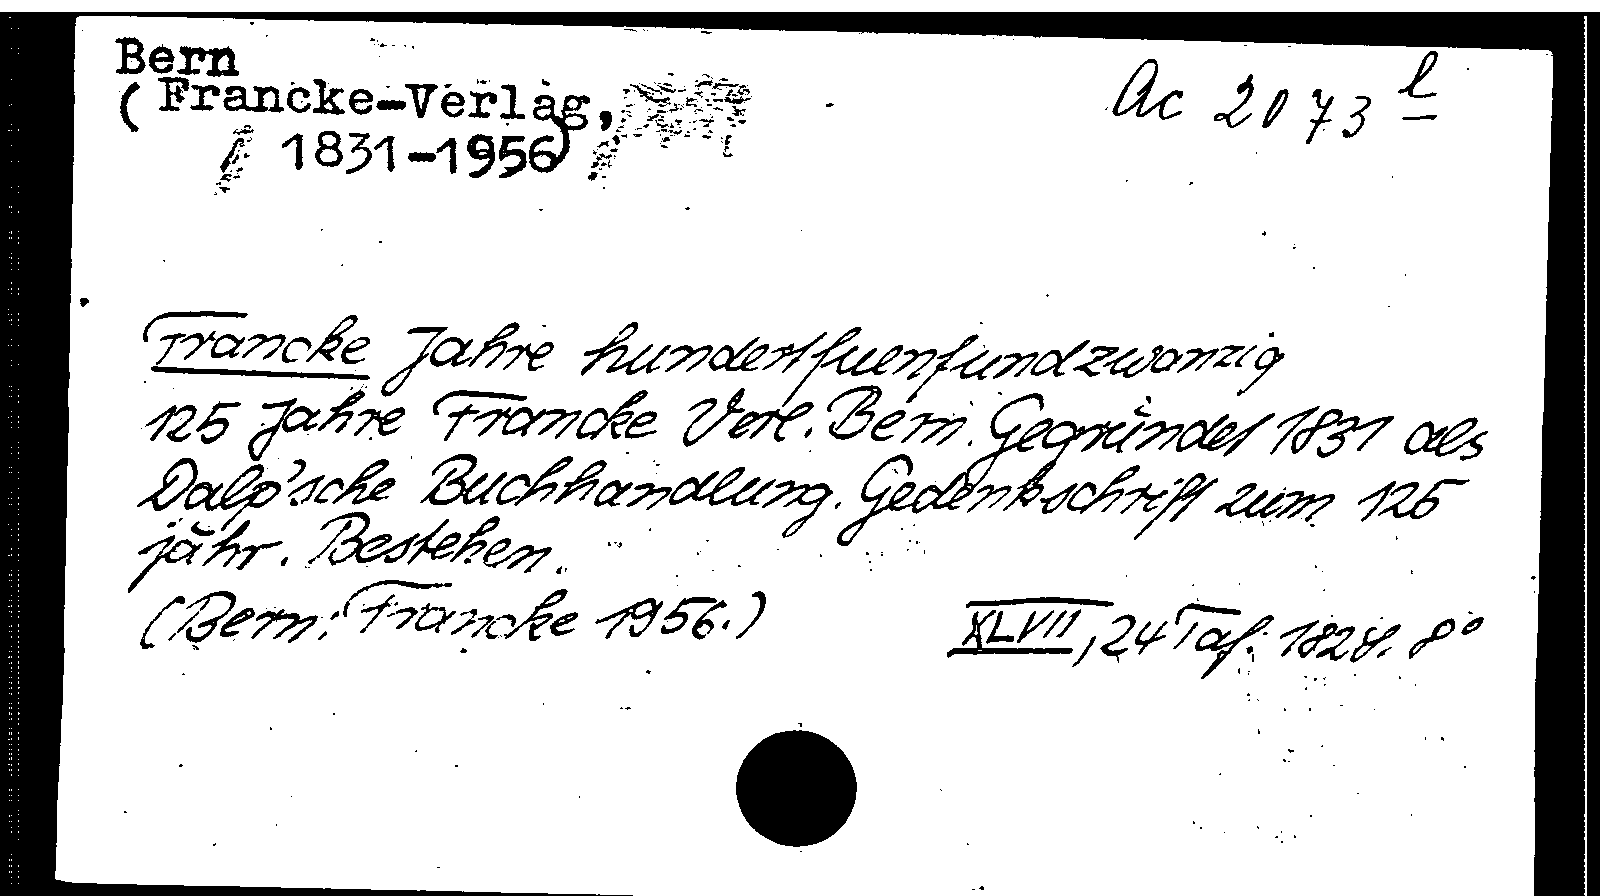 Bern
(Francke-Verlag,
1831-1956)
Ac 2073 l
Francke Jahre hundertfuenfundzwanzig
125 Jahre Francke Verl. Bern. Gegründet 1831 als
Dalp'sche Buchhandlung. Gedenkschrift zum 125
jähr. Bestehen.
(Bern: Francke 1956.) XLVII, 24 Taf. 182 S. 8°